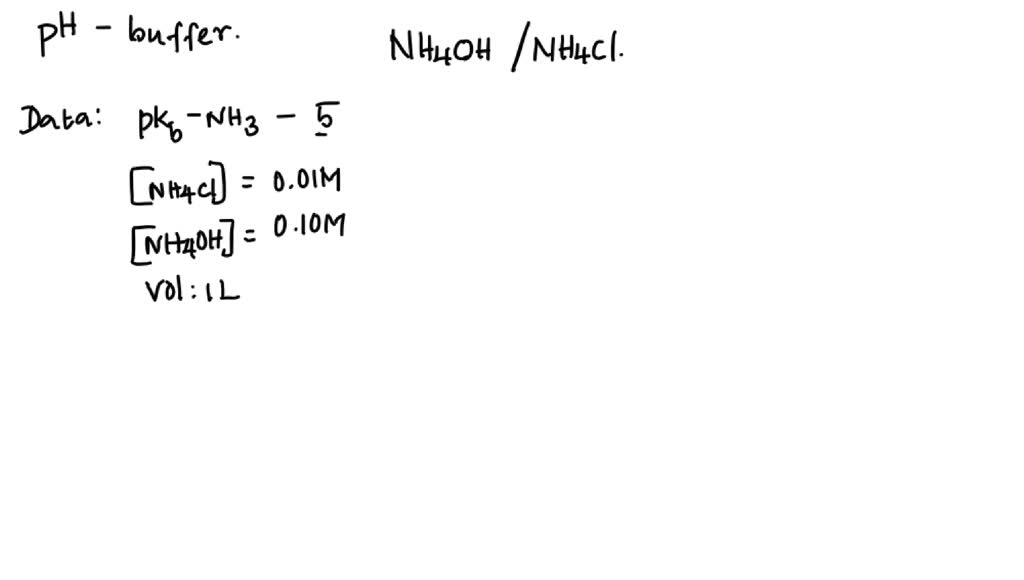 pH - buffer.
NH4OH / NH4Cl.
Data: pkb - NH3 - 5
[NH4Cl] = 0.01M
[NH4OH] = 0.10M
Vol: 1L